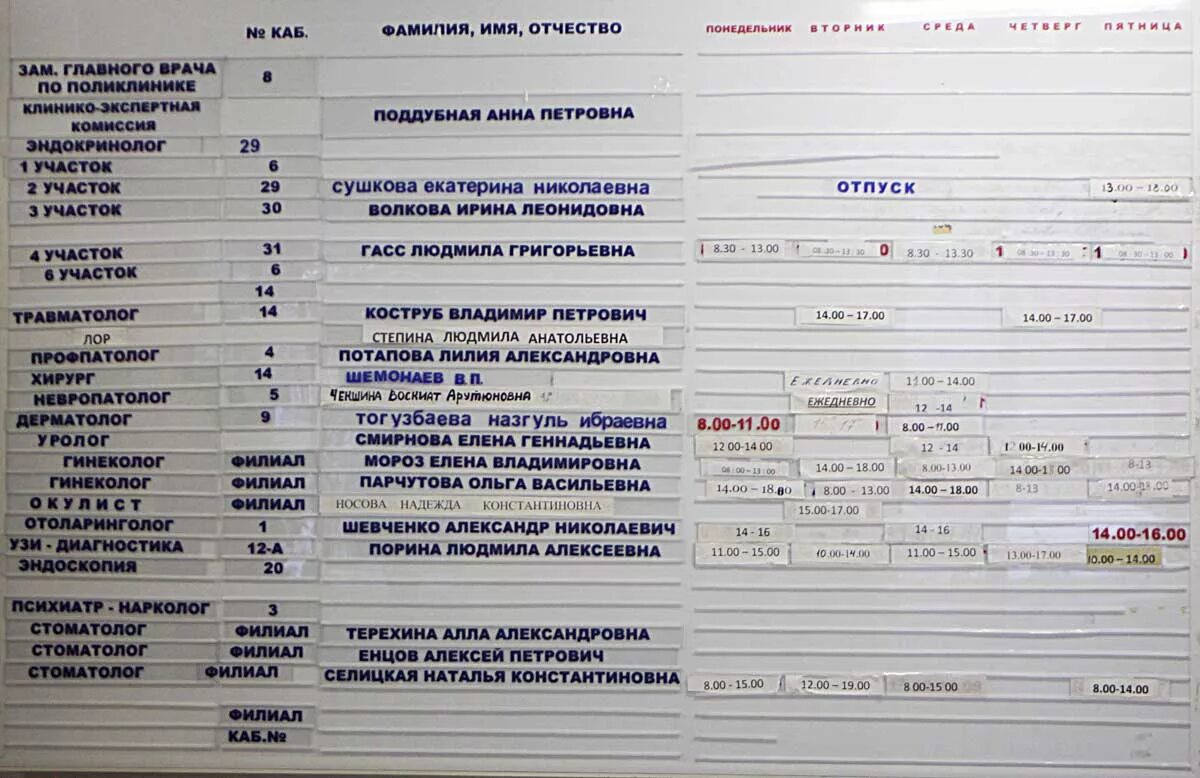 № КАБ. ФАМИЛИЯ, ИМЯ, ОТЧЕСТВО ПОНЕДЕЛЬНИК ВТОРНИК СРЕДА ЧЕТВЕРГ ПЯТНИЦА
ЗАМ. ГЛАВНОГО ВРАЧА
ПО ПОЛИКЛИНИКЕ 8
КЛИНИКО-ЭКСПЕРТНАЯ
КОМИССИЯ ПОДДУБНАЯ АННА ПЕТРОВНА
ЭНДОКРИНОЛОГ 29
1 УЧАСТОК 6
2 УЧАСТОК 29 сушкова екатерина николаевна ОТПУСК 13.00 – 18.00
3 УЧАСТОК 30 ВОЛКОВА ИРИНА ЛЕОНИДОВНА
4 УЧАСТОК 31 ГАСС ЛЮДМИЛА ГРИГОРЬЕВНА 8.30 - 13.00 08.30 – 13.30 0 8.30 - 13.30 1 08.30 – 13.30 1 08.30 – 13.00
6 УЧАСТОК 6
14
ТРАВМАТОЛОГ 14 КОСТРУБ ВЛАДИМИР ПЕТРОВИЧ 14.00 – 17.00 14.00 – 17.00
ЛОР СТЕПИНА ЛЮДМИЛА АНАТОЛЬЕВНА
ПРОФПАТОЛОГ 4 ПОТАПОВА ЛИЛИЯ АЛЕКСАНДРОВНА
ХИРУРГ 14 ШЕМОНАЕВ В.П. ЕЖЕДНЕВНО 11.00 – 14.00
НЕВРОПАТОЛОГ 5 Чекшина Воскиат Арутюновна ЕЖЕДНЕВНО 12 -14
ДЕРМАТОЛОГ 9 тогузбаева назгуль ибраевна 8.00-11.00 8.00 – 11.00
УРОЛОГ СМИРНОВА ЕЛЕНА ГЕННАДЬЕВНА 12 00-14 00 12 - 14 12 00-14.00
ГИНЕКОЛОГ ФИЛИАЛ МОРОЗ ЕЛЕНА ВЛАДИМИРОВНА 08:00 – 13:00 14.00 – 18.00 8.00-13.00 14 00-18 00 8-13
ГИНЕКОЛОГ ФИЛИАЛ ПАРЧУТОВА ОЛЬГА ВАСИЛЬЕВНА 14.00 – 18.00 8.00 – 13.00 14.00 – 18.00 8-13 14.00-18.00
ОКУЛИСТ ФИЛИАЛ НОСОВА НАДЕЖДА КОНСТАНТИНОВНА 15.00-17.00
ОТОЛАРИНГОЛОГ 1 ШЕВЧЕНКО АЛЕКСАНДР НИКОЛАЕВИЧ 14 – 16 14 - 16 14.00-16.00
УЗИ - ДИАГНОСТИКА 12-А ПОРИНА ЛЮДМИЛА АЛЕКСЕЕВНА 11.00 – 15.00 10.00-14.00 11.00 – 15.00 13.00-17.00 10.00 – 14.00
ЭНДОСКОПИЯ 20
ПСИХИАТР - НАРКОЛОГ 3
СТОМАТОЛОГ ФИЛИАЛ ТЕРЕХИНА АЛЛА АЛЕКСАНДРОВНА
СТОМАТОЛОГ ФИЛИАЛ ЕНЦОВ АЛЕКСЕЙ ПЕТРОВИЧ
СТОМАТОЛОГ ФИЛИАЛ СЕЛИЦКАЯ НАТАЛЬЯ КОНСТАНТИНОВНА 8.00 - 15.00 12.00 – 19.00 8 00-15 00 8.00-14.00
ФИЛИАЛ
КАБ.№